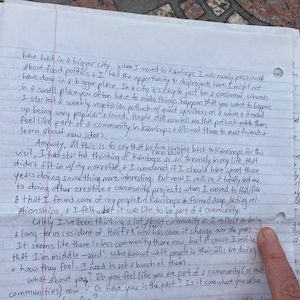 have had in a bigger city. When I moved to Kamloops I was newly passionate
about food politics & I had the opportunity to do projects here I might not
have done in a bigger place. In a city it's easy to just be a consumer, whereas
in a small place you often have to make things happen that you want to happen
I started a weekly vegetarian potluck w/ guest speakers on a whim & it ended
up being very popular & loved. People still now tell me that potluck made them
feel like part of a community in Kamloops & allowed them to meet friends &
learn about new ideas.
Anyway, all this is to say that before coming back to Kamloops for this
visit, I had started thinking of Kamloops as an anomaly in my life that
didn't fit in w/ my narrative, & I wondered if I should have spent those
years doing something more interesting. But now I realize it finally led me
to doing other creative & community projects when I moved to Halifax
& that I found some of my people in Kamloops & formed deep, lasting rel-
ationships, & I felt what it was like to be part of a community.
Lately I've been thinking a lot about community as I realize as being
a long-term resident of Halifax will soon it change over the years
It seems like there is less community there now, but of course I realize
that I'm middle-aged. Who knows what people in their 20s are doing
& how they feel. I need to ask a bunch of them.
What about you? Do you feel like you are part of a community (or multiple
communities) now? Or have you in the past? Is it somewhere you